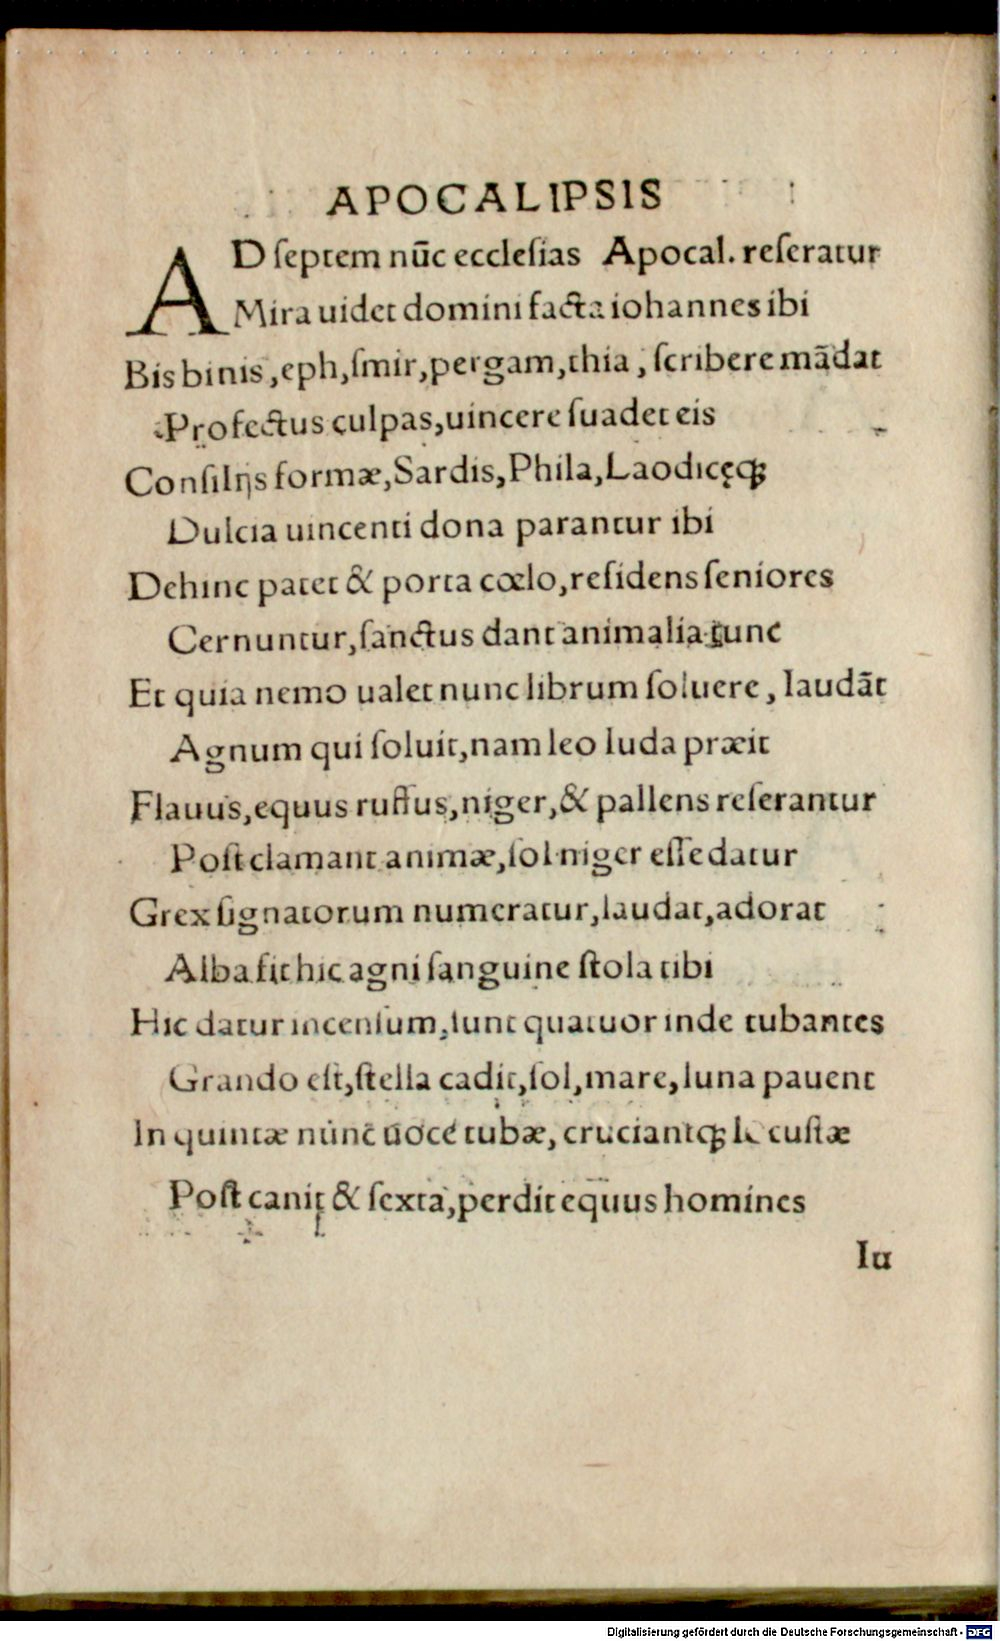 APOCALIPSIS
AD ſeptem nūc eccleſias Apocal. reſeratur
Mira uidet domini facta iohannes ibi
Bis binis, eph, ſmir, pergam, thia, ſcribere mādat
Profectus culpas, uincere ſuadet eis
Conſilijs formæ, Sardis, Phila, Laodicęq;
Dulcia uincenti dona parantur ibi
Dehinc patet & porta cœlo, reſidens ſeniores
Cernuntur, ſanctus dant animalia tunc
Et quia nemo ualet nunc librum ſoluere, laudāt
Agnum qui ſoluit, nam leo Iuda præit
Flauus, equus ruffus, niger, & pallens reſerantur
Poſt clamant animæ, ſol niger eſſe datur
Grex ſignatorum numeratur, laudat, adorat
Alba fit hic agni ſanguine ſtola tibi
Hic datur incenſum, ſunt quatuor inde tubantes
Grando eſt, ſtella cadit, ſol, mare, luna pauent
In quintæ nunc uoce tubæ, cruciantq; cuſtæ
Poſt canit & ſexta, perdit equus homines
Iu
Digitalisierung gefördert durch die Deutsche Forschungsgemeinschaft - DFG